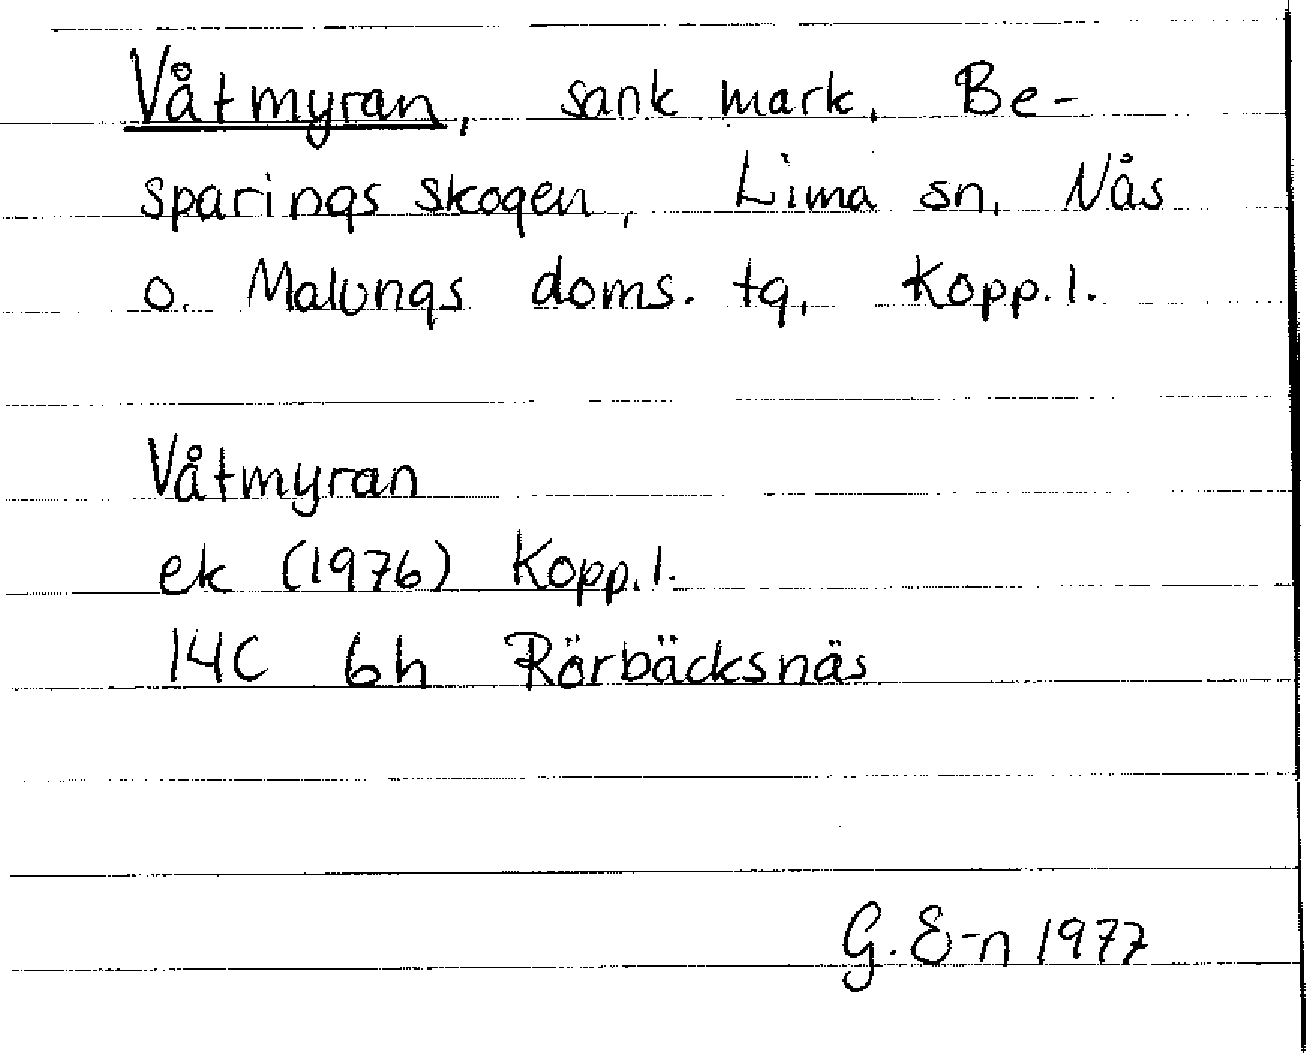 Våtmyran, sank mark, Be-
sparingsskogen, Lima sn, Nås
o. Malungs doms. tg, Kopp. l.
Våtmyran
ek (1976) Kopp. l.
14C 6h Rörbäcksnäs
G. E-n 1977